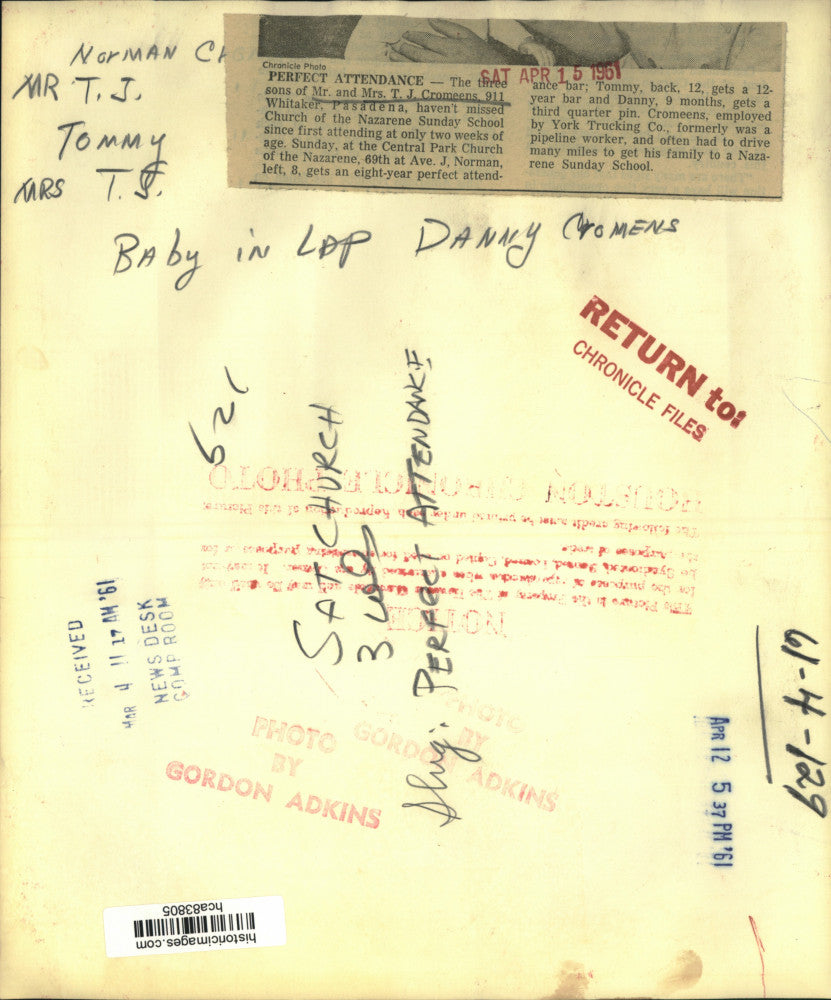 NORMAN
MR T. J.
TOMMY
MRS T. J.
Chronicle Photo
SAT APR 15 1961
PERFECT ATTENDANCE — The three
sons of Mr. and Mrs. T. J. Cromeens, 911
Whitaker, Pasadena, haven't missed
Church of the Nazarene Sunday School
since first attending at only two weeks of
age. Sunday, at the Central Park Church
of the Nazarene, 69th at Ave. J, Norman,
left, 8, gets an eight-year perfect attend-
ance bar; Tommy, back, 12, gets a 12-
year bar and Danny, 9 months, gets a
third quarter pin. Cromeens, employed
by York Trucking Co., formerly was a
pipeline worker, and often had to drive
many miles to get his family to a Naza-
rene Sunday School.
BABY IN LAP DANNY CROMENS
RETURN to:
CHRONICLE FILES
521
SAT CHURCH
3 COL
Slug: PERFECT ATTENDANCE
HOUSTON CHRONICLE PHOTO
The following credit must be printed under each Reproduction of this Picture.
NOTICE
RECEIVED
MAR 4 11 17 AM '61
NEWS DESK
COMP ROOM
PHOTO
BY
GORDON ADKINS
PHOTO
BY
GORDON ADKINS
61-4-129
APR 12 5 37 PM '61
historicimages.com
hca83805